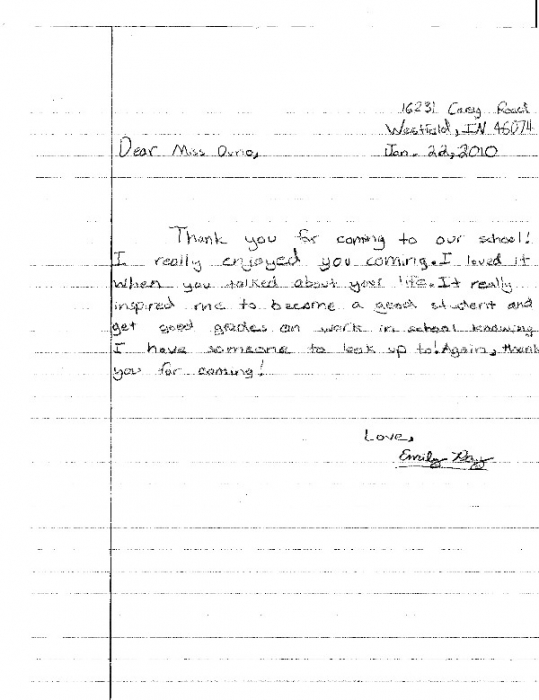 16231 Carey Road
Westfield, IN 46074
Dear Miss
Jan. 22, 2010
Thank you for coming to our school!
I really enjoyed you coming. I loved it
when you talked about your life. It really
inspired me to become a good student and
get good grades on work in school knowing
I have someone to look up to! Again, thank
you for coming!
Love,
Emily